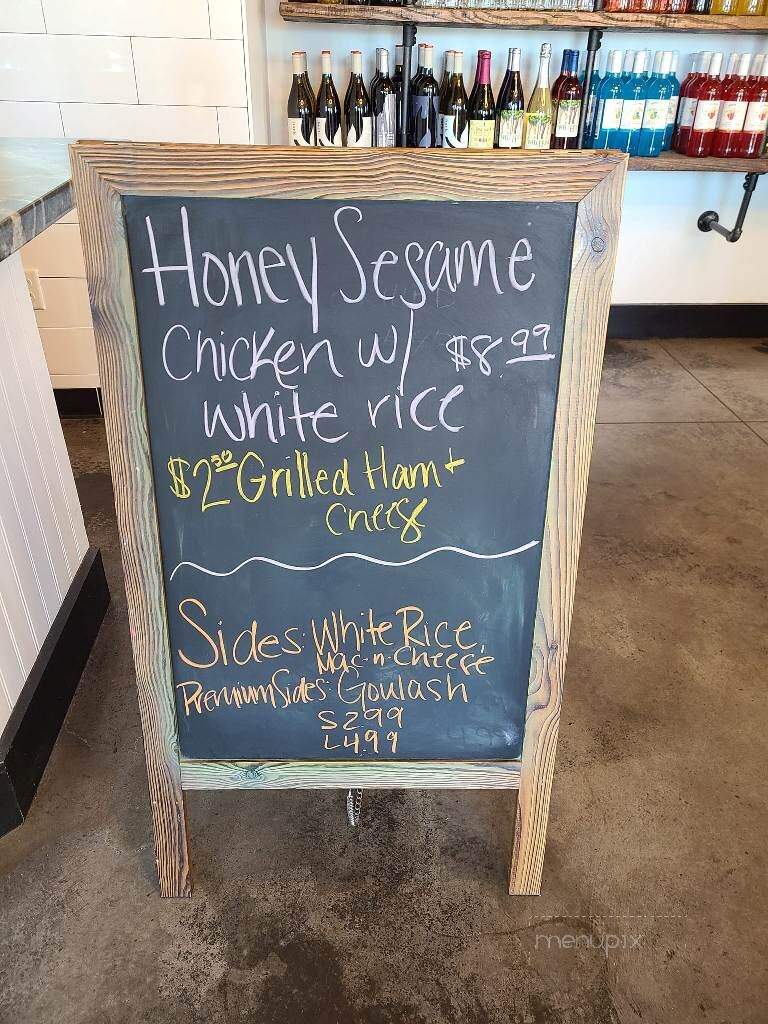 Honey Sesame
Chicken w/ $8.99
white rice
$2.50 Grilled Ham +
Cheese
Sides: White Rice,
Mac-n-Cheese
Premium Sides: Goulash
S 2.99
L 4.99
menupix